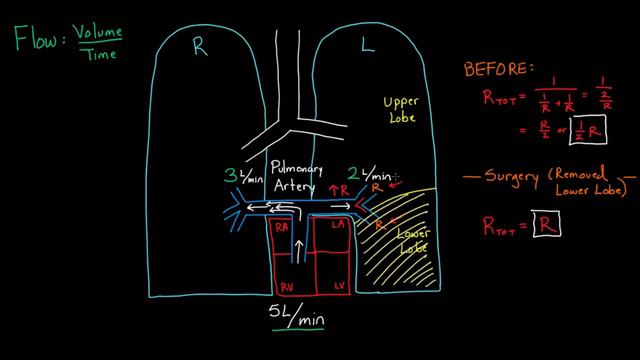 Flow: Volume
Time
R
L
Upper
Lobe
3 L/min
Pulmonary
Artery
2 L/min
↑ R
R
R
RA
LA
RV
LV
Lower
Lobe
5L/min
BEFORE:
R TOT = 1 / (1/R + 1/R) = 1 / (2/R)
= R/2 or 1/2 R
— Surgery (Removed Lower Lobe) —
R TOT = R